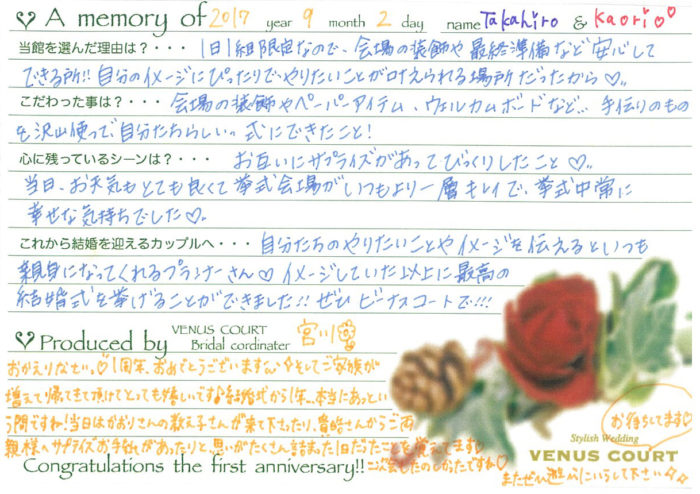 ♡ A memory of 2017 year 9 month 2 day name Takahiro & Kaori♡♡
当館を選んだ理由は？・・・ 1日1組限定なので、会場の装飾や最終準備など安心して
できる所!! 自分のイメージにぴったりでやりたいことが叶えられる場所だったから♡。
こだわった事は？・・・ 会場の装飾やペーパーアイテム、ウェルカムボードなど… 手伝りのもの
も沢山使って自分たちらしいっ式にできたこと!
心に残っているシーンは？・・・ お互いにサプライズがあってびっくりしたこと♡。
当日、お天気もとても良くて挙式会場がいつもより一層キレイで、挙式中常に
幸せな気持ちでした♡。
これから結婚を迎えるカップルへ・・・ 自分たちのやりたいことやイメージを伝えるといつも
親身になってくれるプランナーさん♡ イメージしていた以上に最高の
結婚式を挙げることができました!! ぜひ ビーナスコートで!!!
♡Produced by VENUS COURT Bridal cordinater 宮川
おかえりなさい。♡1周年、おめでとうございます。そしてご家族が
増えて帰ってきて頂けてとっても嬉しいです♪結婚式から1年…本当にあっとい
う間ですね!当日はかおりさんの教え子さんが来て下さったり、貴皓さんからご両
親様へサプライズお手紙があったりと、思いがたくさん詰まった1日だったことを覚えてます♡
二次会もたのしかったですね♡
またぜひ遊びにいらして下さい
お待ちしてます♡
Stylish Wedding
VENUS COURT
Congratulations the first anniversary!!